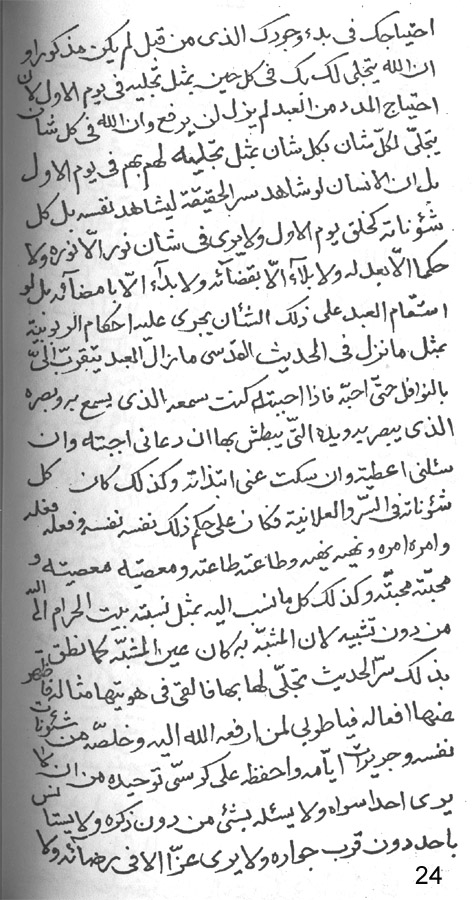 احتياجك فى بدء وجودك الذى من قبل لم يكن مذكورا و
ان الله يتجلى لك بك فى كل حين بمثل تجليه فى يوم الاول لان
احتياج المدد من العبد لم يزل لن يرفع وان الله فى كل شان
يتجلّى لكل شان بكل شان بمثل تجليه لهم بهم فى يوم الاول
بل ان الانسان لو شاهد سر الحقيقة ليشاهد نفسه بل كل
شؤناته كخلق يوم الاول ولا يرى فى شان نور الا نوره ولا
حكما الا بعدله ولا بلآء الا بقضآئه ولا بدآء الا بامضآئه بل لو
استقام العبد على ذلك الشأن يجرى عليه احكام الربوبية
بمثل ما نزل فى الحديث القدسى ما زال العبد يتقرب الىّ
بالنوافل حتى احبّه فاذا احببته كنت سمعه الذى يسمع به وبصره
الذى يبصر به ويده التى يبطش بها ان دعانى اجبته وان
سئلنى اعطيته وان سكت عنى ابتدأته وكذلك كان كل
شؤناته فى السرّ والعلانية فكان على حكم ذلك نفسه نفسه وفعله فعله
وامره امره ونهيه نهيه وطاعته طاعته ومعصيته معصيته و
محبّته محبّته وكذلك كل ما نسب اليه بمثل نسبته بيت الحرام اليه
من دون تشبيه لان المشبّه به كان عين المشبّه كما نطق
بذلك سرّ الحديث تجلّى لها بها فالقى فى هويتها مثاله فاظهر
عنها افعاله فيا طوبى لمن ارفعه الله اليه وخلصّه من شؤنات
نفسه وجريرات ايامه واحفظه على كرسىّ توحيده من ان لا
يرى احدا سواه ولا يسئله بشئ من دون ذكره ولا يستانس
باحد دون قرب جواره ولا يرى عزّا الا فى رضآئه ولا
24